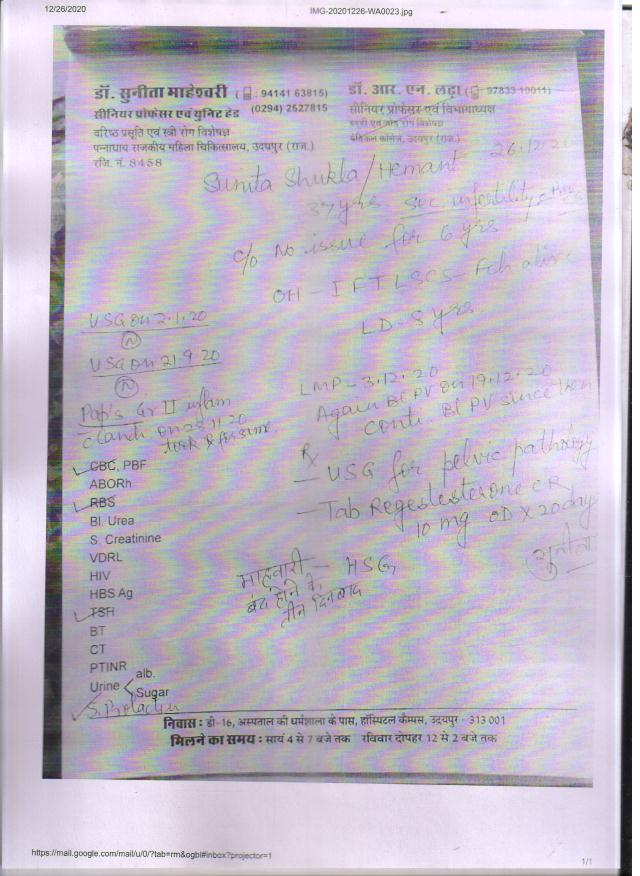 12/26/2020
IMG-20201226-WA0023.jpg
डॉ. सुनीता माहेश्वरी ( : 94141 63815)
(0294) 2527815
सीनियर प्रोफेसर एवं युनिट हेड
वरिष्ठ प्रसूति एवं स्त्री रोग विशेषज्ञ
पन्नाधाय राजकीय महिला चिकित्सालय, उदयपुर (राज.)
रजि. नं. 8458
डॉ. आर. एन. लढ़ा ( : 97833 10011)
सीनियर प्रोफेसर एवं विभागाध्यक्ष
मेडिकल कॉलेज, उदयपुर (राज.)
26.12.20
Sunita Shukla/Hemant
37 yrs. Sec infertility
c/o No issue for 6 yrs.
OH - I FTLSCS - Fch alive
LD - 8 yrs
USG on 2.1.20
(N)
USG on 21.9.20
(N)
Pap's Gr II inflam
LMP - 3.12.20
Again Bl PV on 19.12.20
conti. Bl PV since then
Rx
- USG for pelvic pathology
- Tab Regestesterone CR
10 mg OD X 20 day
सुनीता
CBC, PBF
ABORh
RBS
Bl. Urea
S. Creatinine
VDRL
HIV
HBS Ag
TSH
BT
CT
PTINR
Urine alb.
Sugar
S. Prolactin
माहवारी - HSG
बंद होने के
तीन दिन बाद
निवास : डी-16, अस्पताल की धर्मशाला के पास, हॉस्पिटल कैम्पस, उदयपुर - 313 001
मिलने का समय : सायं 4 से 7 बजे तक रविवार दोपहर 12 से 2 बजे तक
https://mail.google.com/mail/u/0/?tab=rm&ogbl#inbox?projector=1
1/1